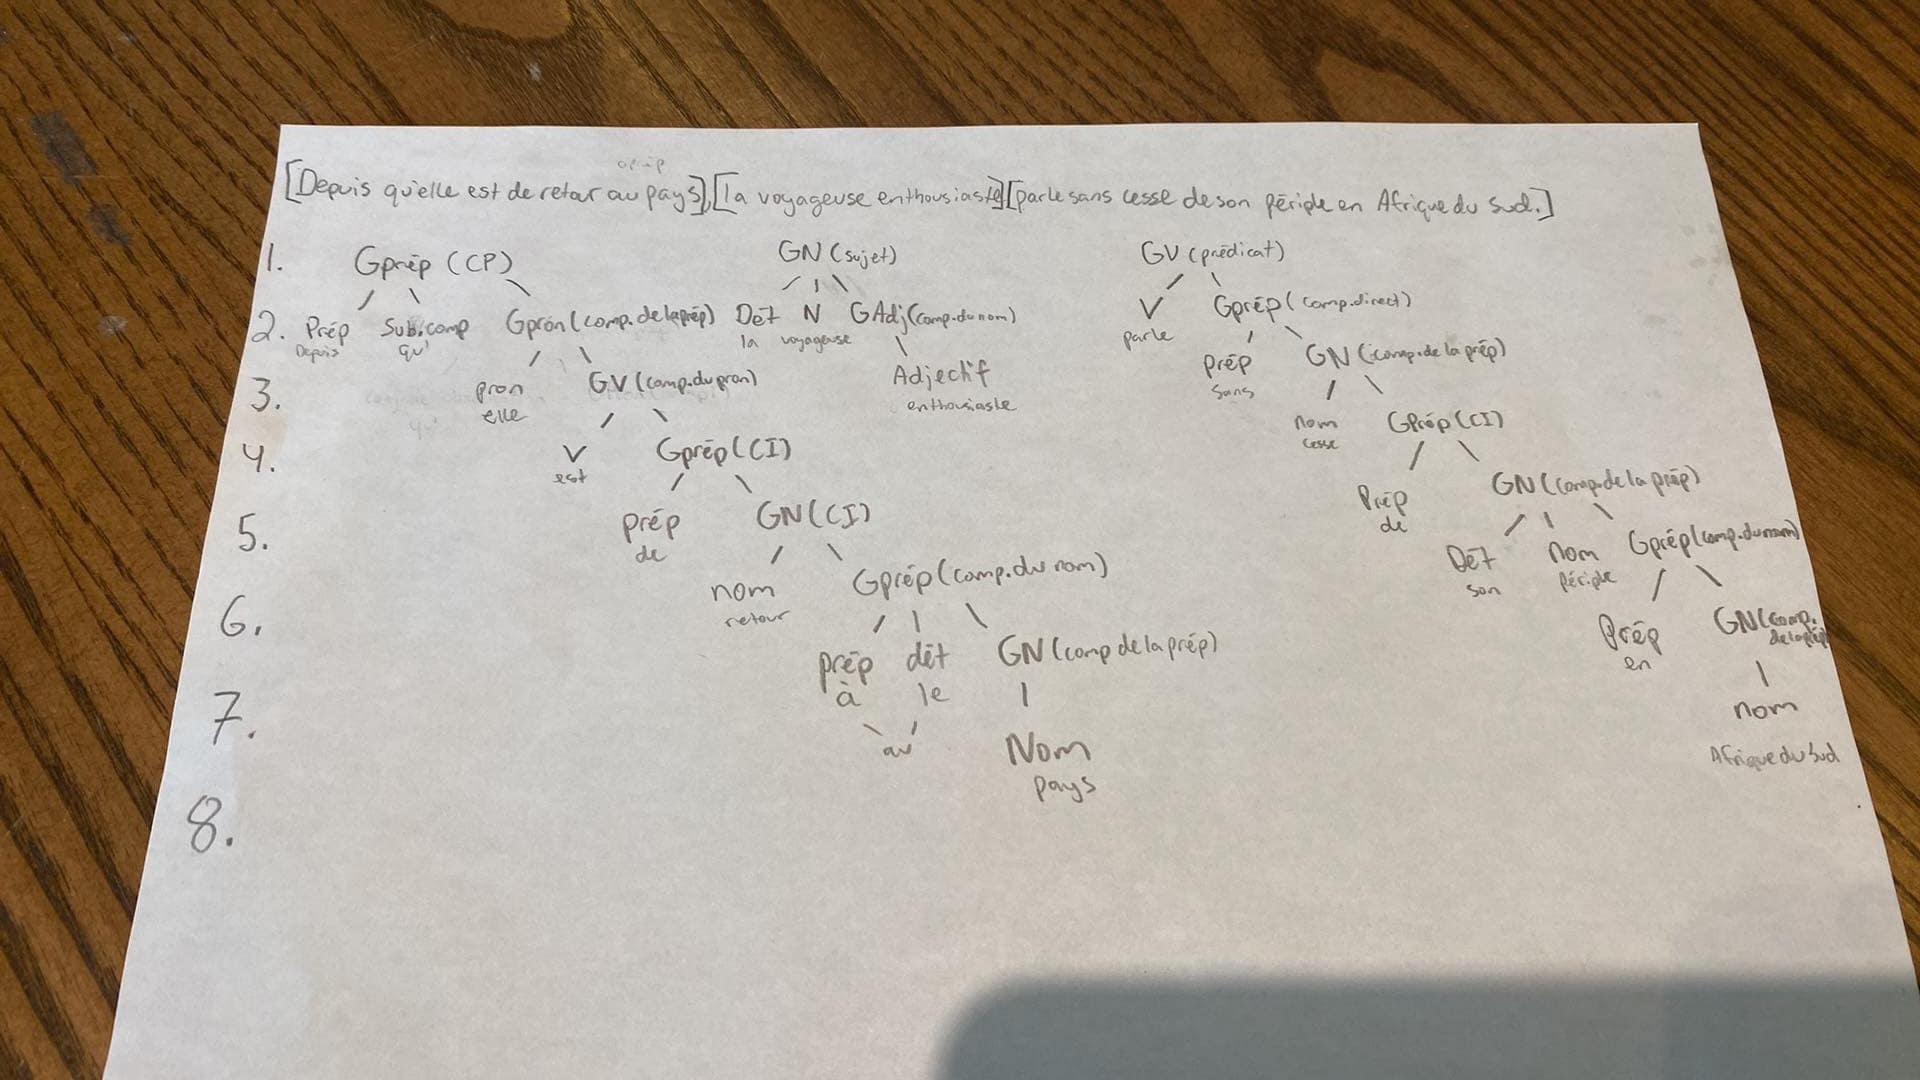 gprép
[Depuis qu'elle est de retour au pays], [la voyageuse enthousiaste] [parle sans cesse de son périple en Afrique du Sud.]
1. Gprép (CP) GN (sujet) GV (prédicat)
2. Prép Sub.comp Gpron (comp. de la prép) Dét N GAdj (comp. du nom) V Gprép (comp. direct)
Depuis qu' la voyageuse parle
3. pron GV (comp. du pron) Adjectif prép GN (comp. de la prép)
elle enthousiaste sans
4. V Gprép (CI) nom GPrép (CI)
est cesse
5. prép GN (CI) Prép GN (comp. de la prép)
de de
6. nom Gprép (comp. du nom) Dét nom Gprép (comp. du nom)
retour son périple
7. prép dét GN (comp de la prép) Prép GN (comp. de la prép)
à le en
au Nom nom
pays Afrique du Sud
8.